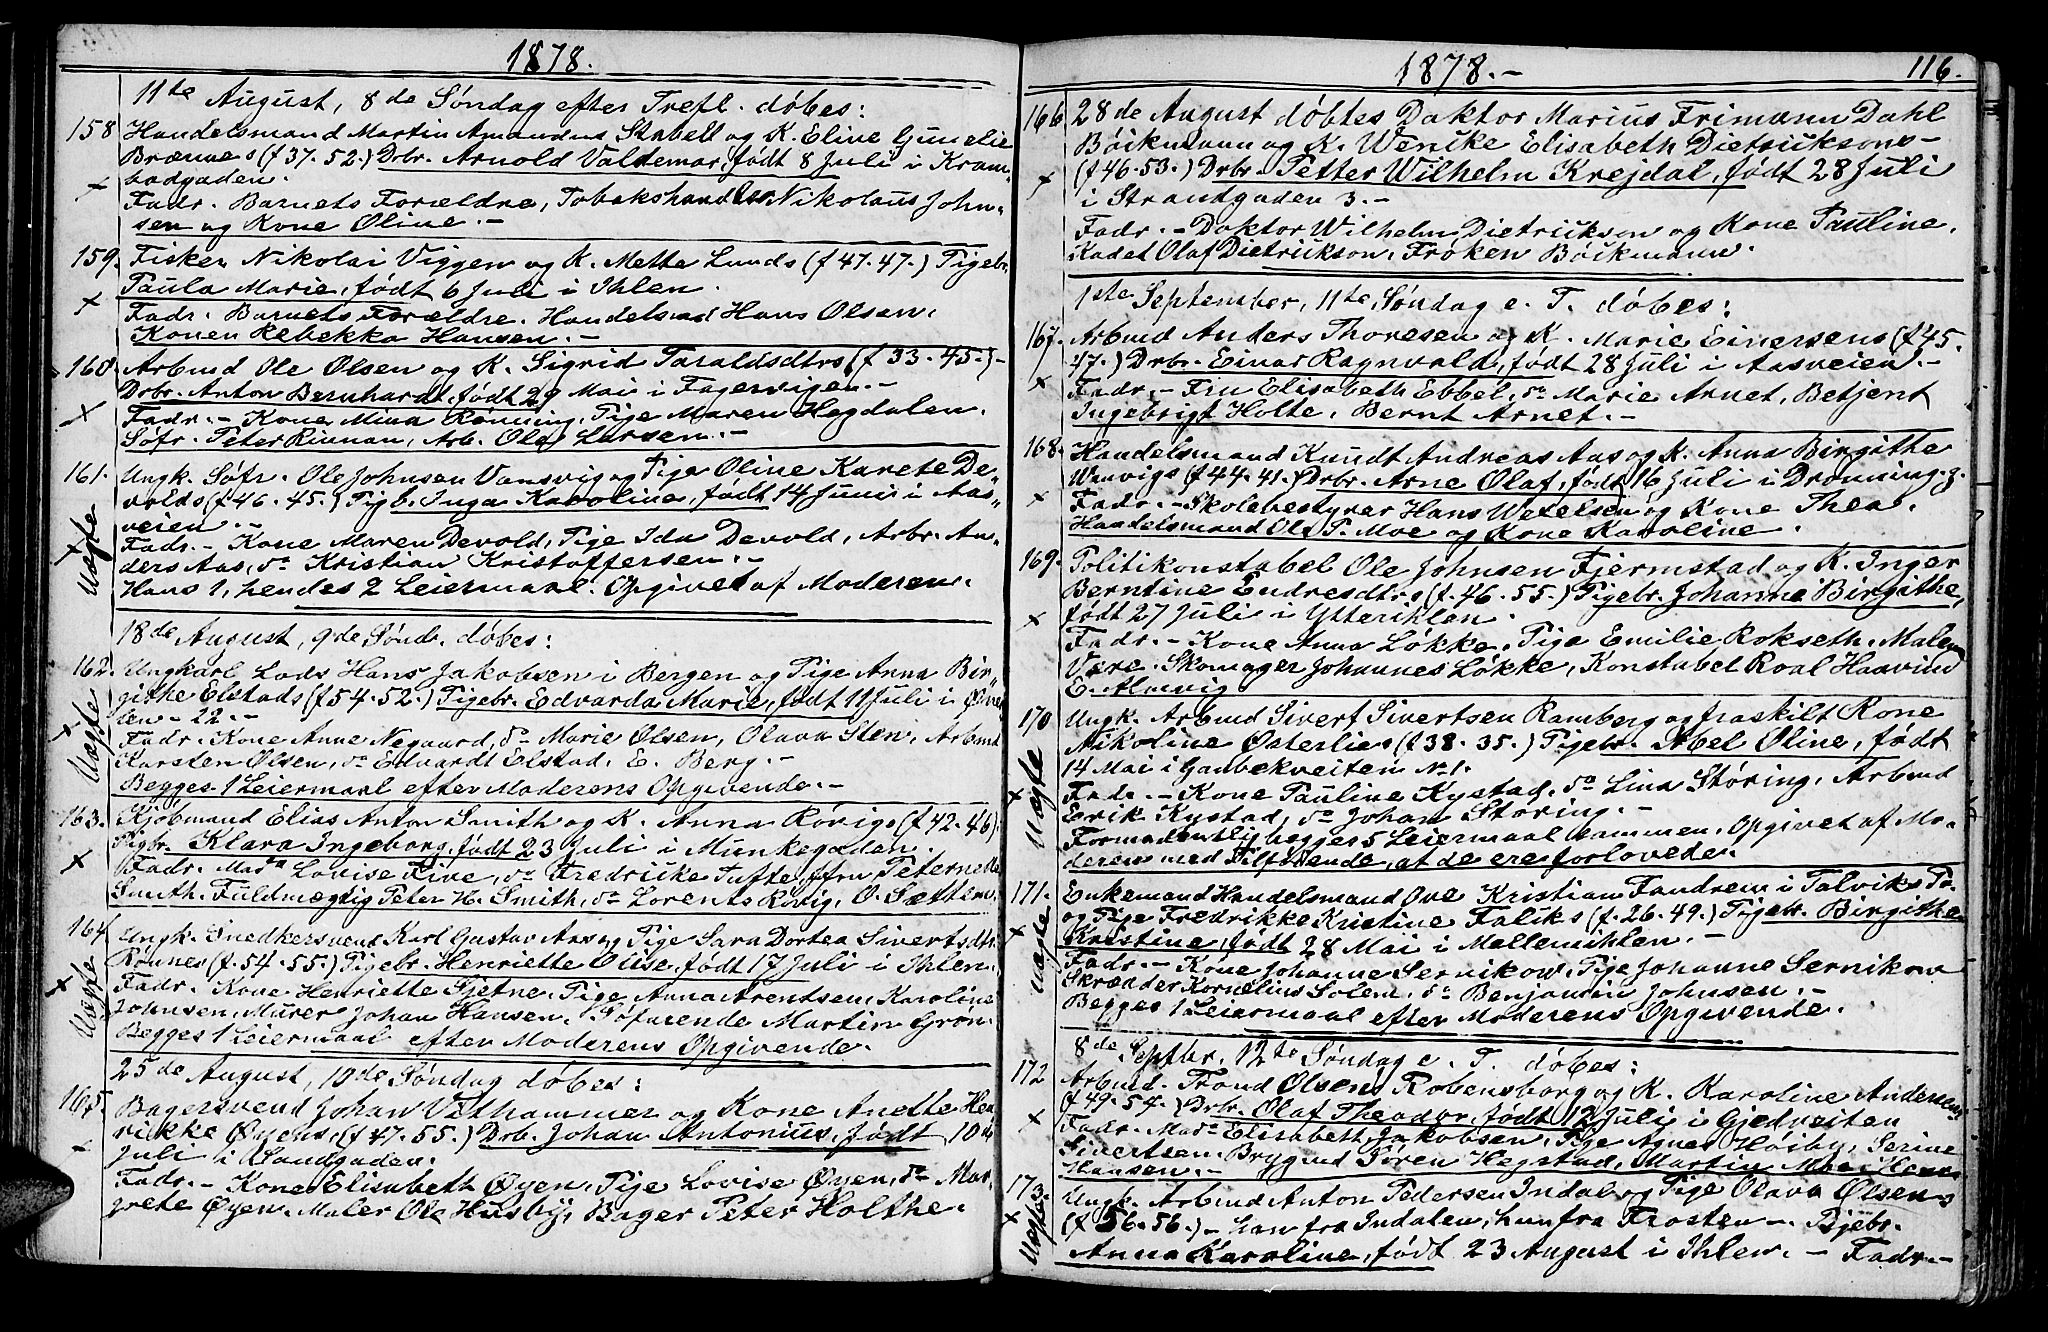 1878.
11te August, 8de Søndag efter Trefl. døbes:
158 Handelsmand Martin Amandus Stabell og K. Eline Gunelie
Brænnes (f 37. 52.) Drbr. Arnold Valdemar, født 8 Juli i Kram-
bodgaden.
Fadr. Barnets Forældre, Tobakshandler Nikolaus John-
sen og Kone Oline.-
159. Fisker Nikolai Viggen og K. Mette Lunds (f 47. 47.) Pigebr.
Paula Marie, født 6 Juli i Ihlen.
Fadr. Barnets Forældre. Handelsmd Hans Olsen,
Konen Rebekka Hansen.-
160. Arbmd Ole Olsen og K. Sigrid Taraldsdtrs (f 33. 45.)-
Drbr. Anton Bernhardt, født 29 Mai i Fagervigen.-
Fadr.- Kone Mina Rønning, Pige Maren Hegdalen.
Søfr. Peter Rinnan, Arb. Ole Larsen.-
161. Ungk. Søfr. Ole Johnsen Vansvig og Pige Oline Karete De-
volds (f 46. 45.) Pigb. Inga Karoline, født 14 Juni i Aas-
veien.-
Uægte
Fadr.- Kone Maren Devold, Pige Ida Devold, Arbr. An-
ders Aas, do Kristian Kristoffersen.-
Hans 1, hendes 2 Leiermaal. Opgivet af Moderen.
18de August, 9de Sønd. døbes:
162. Ungkarl Lods Hans Jakobsen i Bergen og Pige Anna Bir-
githe Elstads (f 54. 52.) Pigebr. Edvarda Marie, født 11 Juli i
len- 22.-
Uægte
Fadr. Kone Anne Negaard, do Marie Olsen, Olava Sten, Arbmd
Karsten Olsen, do Edvardt Elstad, E. Berg.-
Begges 1 Leiermaal efter Moderens Opgivende.-
163. Kjøbmand Elias Anton Smith og K. Anna Rövigs (f 42. 46).
Pigbr. Klara Ingeborg, født 23 Juli i Munkegaden.
Fadr. Madm Lovise Five, do Fredrikke Tufte, ffru Peternelle
Smith. Fuldmægtig Peter H. Smith, do Lorents Rövig, O. Sættem.
164. Ungk. Snedkersvend Karl Gustav Aas og Pige Sara Dortea Sivertsdtr.
Rønnes (f. 54. 55.) Pigebr. Henriette Olise, født 17 Juli i Ihlen.
Uægte
Fadr. Kone Henriette Sjetne. Pige Anna Arentsen, Karoline
Johnsen, Murer Johan Hansen. Søfarende Martin Grøn.
Begges 1 Leiermaal efter Moderens Opgivende.
25de August, 10de Søndag døbes:
165. Bagersvend Johan Vethammer og Kone Anette Hen-
rikke Øyens, (f 47. 55.) Drb. Johan Antonius, født 10de
Juli i Sandgaden.
Fadr.- Kone Elisabeth Øyen, Pige Lovise Øyen, do Mar-
grete Øyen. Maler Ole Husby, Bager Peter Holthe.
1878.- 116.
166 28de August døbtes Doktor Marius Frimann Dahl
Böickmann og K. Wenike Elisabeth Dietricksons-
(f 46. 53.) Drbr. Petter Wilhelm Krejdal, født 28 Juli
i Strandgaden 3.-
Fadr.- Doktor Wilhelm Dietrickson og Kone Pauline.
Kadet Olaf Dietrickson. Frøken Böickmann.
1ste September, 11te Søndag e. T. døbes:
167. Arbmd Anders Thoresen og K. Marie Einersens (f 45.
47.) Drbr. Einar Ragnvald, født 28 Juli i Aasveien.-
Fadr.- Fru Elisabeth Ebbel, do Marie Arnet, Betjent
Ingebrigt Holte. Bernt Arnet.-
168. Handelsmand Knudt Andreas Aas og K. Anna Birgithe
Wenvigs (f 44. 41.) Drbr. Arne Olaf, født 16 Juli i Dronning. g.
Fadr.- Skolebestyrer Hans Wetelsen og Kone Thea.
Handelsmand Ole P. Moe og Kone Karoline.
169. Politikonstabel Ole Johnsen Fjermstad og K. Inger
Berntine Endresdtrs (f. 46. 55.) Pigebr. Johanne Birgithe,
født 27 Juli i Ytterihlen.
Fadr.- Kone Anna Løkke. Pige Emilie Rokseth. Malene
Være. Skomager Johannes Løkke, Konstabel Roal Haavind
E. Almvig
170 Ungk. Arbmd Sivert Sivertsen Ramberg og fraskilt Kone
Nikoline Østerlies (f 38. 35.) Pigebr. Abel Oline, født
14 Mai i Gaubekveiten No 1.
Uægte
Fadr.- Kone Pauline Kystad, do Lina Störing, Arbmd
Erik Kystad, do Johan Störing.-
Formodentlig begges 5 Leiermaal sammen. Opgivet af Mo-
deren med Tilföiende, at de ere forlovede.
171. Enkemand Handelsmand Ove Kristian Fandrem i Talvik
og Pige Fredrikke Kristine Falks (f. 26. 49.) Pigebr. Birgithe
Kristine, født 28 Mai i Mellemihlen.-
Uægte
Fadr.- Kone Johanne Sernikow, Pige Johanne Sernikow
Skræder Kornelius Solem, do Benjamin Johnsen.-
Begges 1 Leiermaal efter Moderens Opgivende.
8de Septbr. 12te Søndag e. T. døbes:
172 Arbmd. Trond Olsen Robensborg og K. Karoline Andersens
(f 49. 54.) Drbr. Olaf Theodor, født 12 Juli i Gjedveiten
Fadr. Madm Elisabeth Jakobsen. Pige Agnes Høiby, Serine
Sivertsen. Brygmd Sören Hegstad, Martin Moe,
Hansen.-
173. Ungk. Arbmd Anton Pedersen Indal og Pige Olava Olsens
(f 56. 56.)- han fra Indalen, hun fra Frosten-. Pjebr.
Uægte
Anna Karoline, født 23 August i Ihlen.- Fadr.-